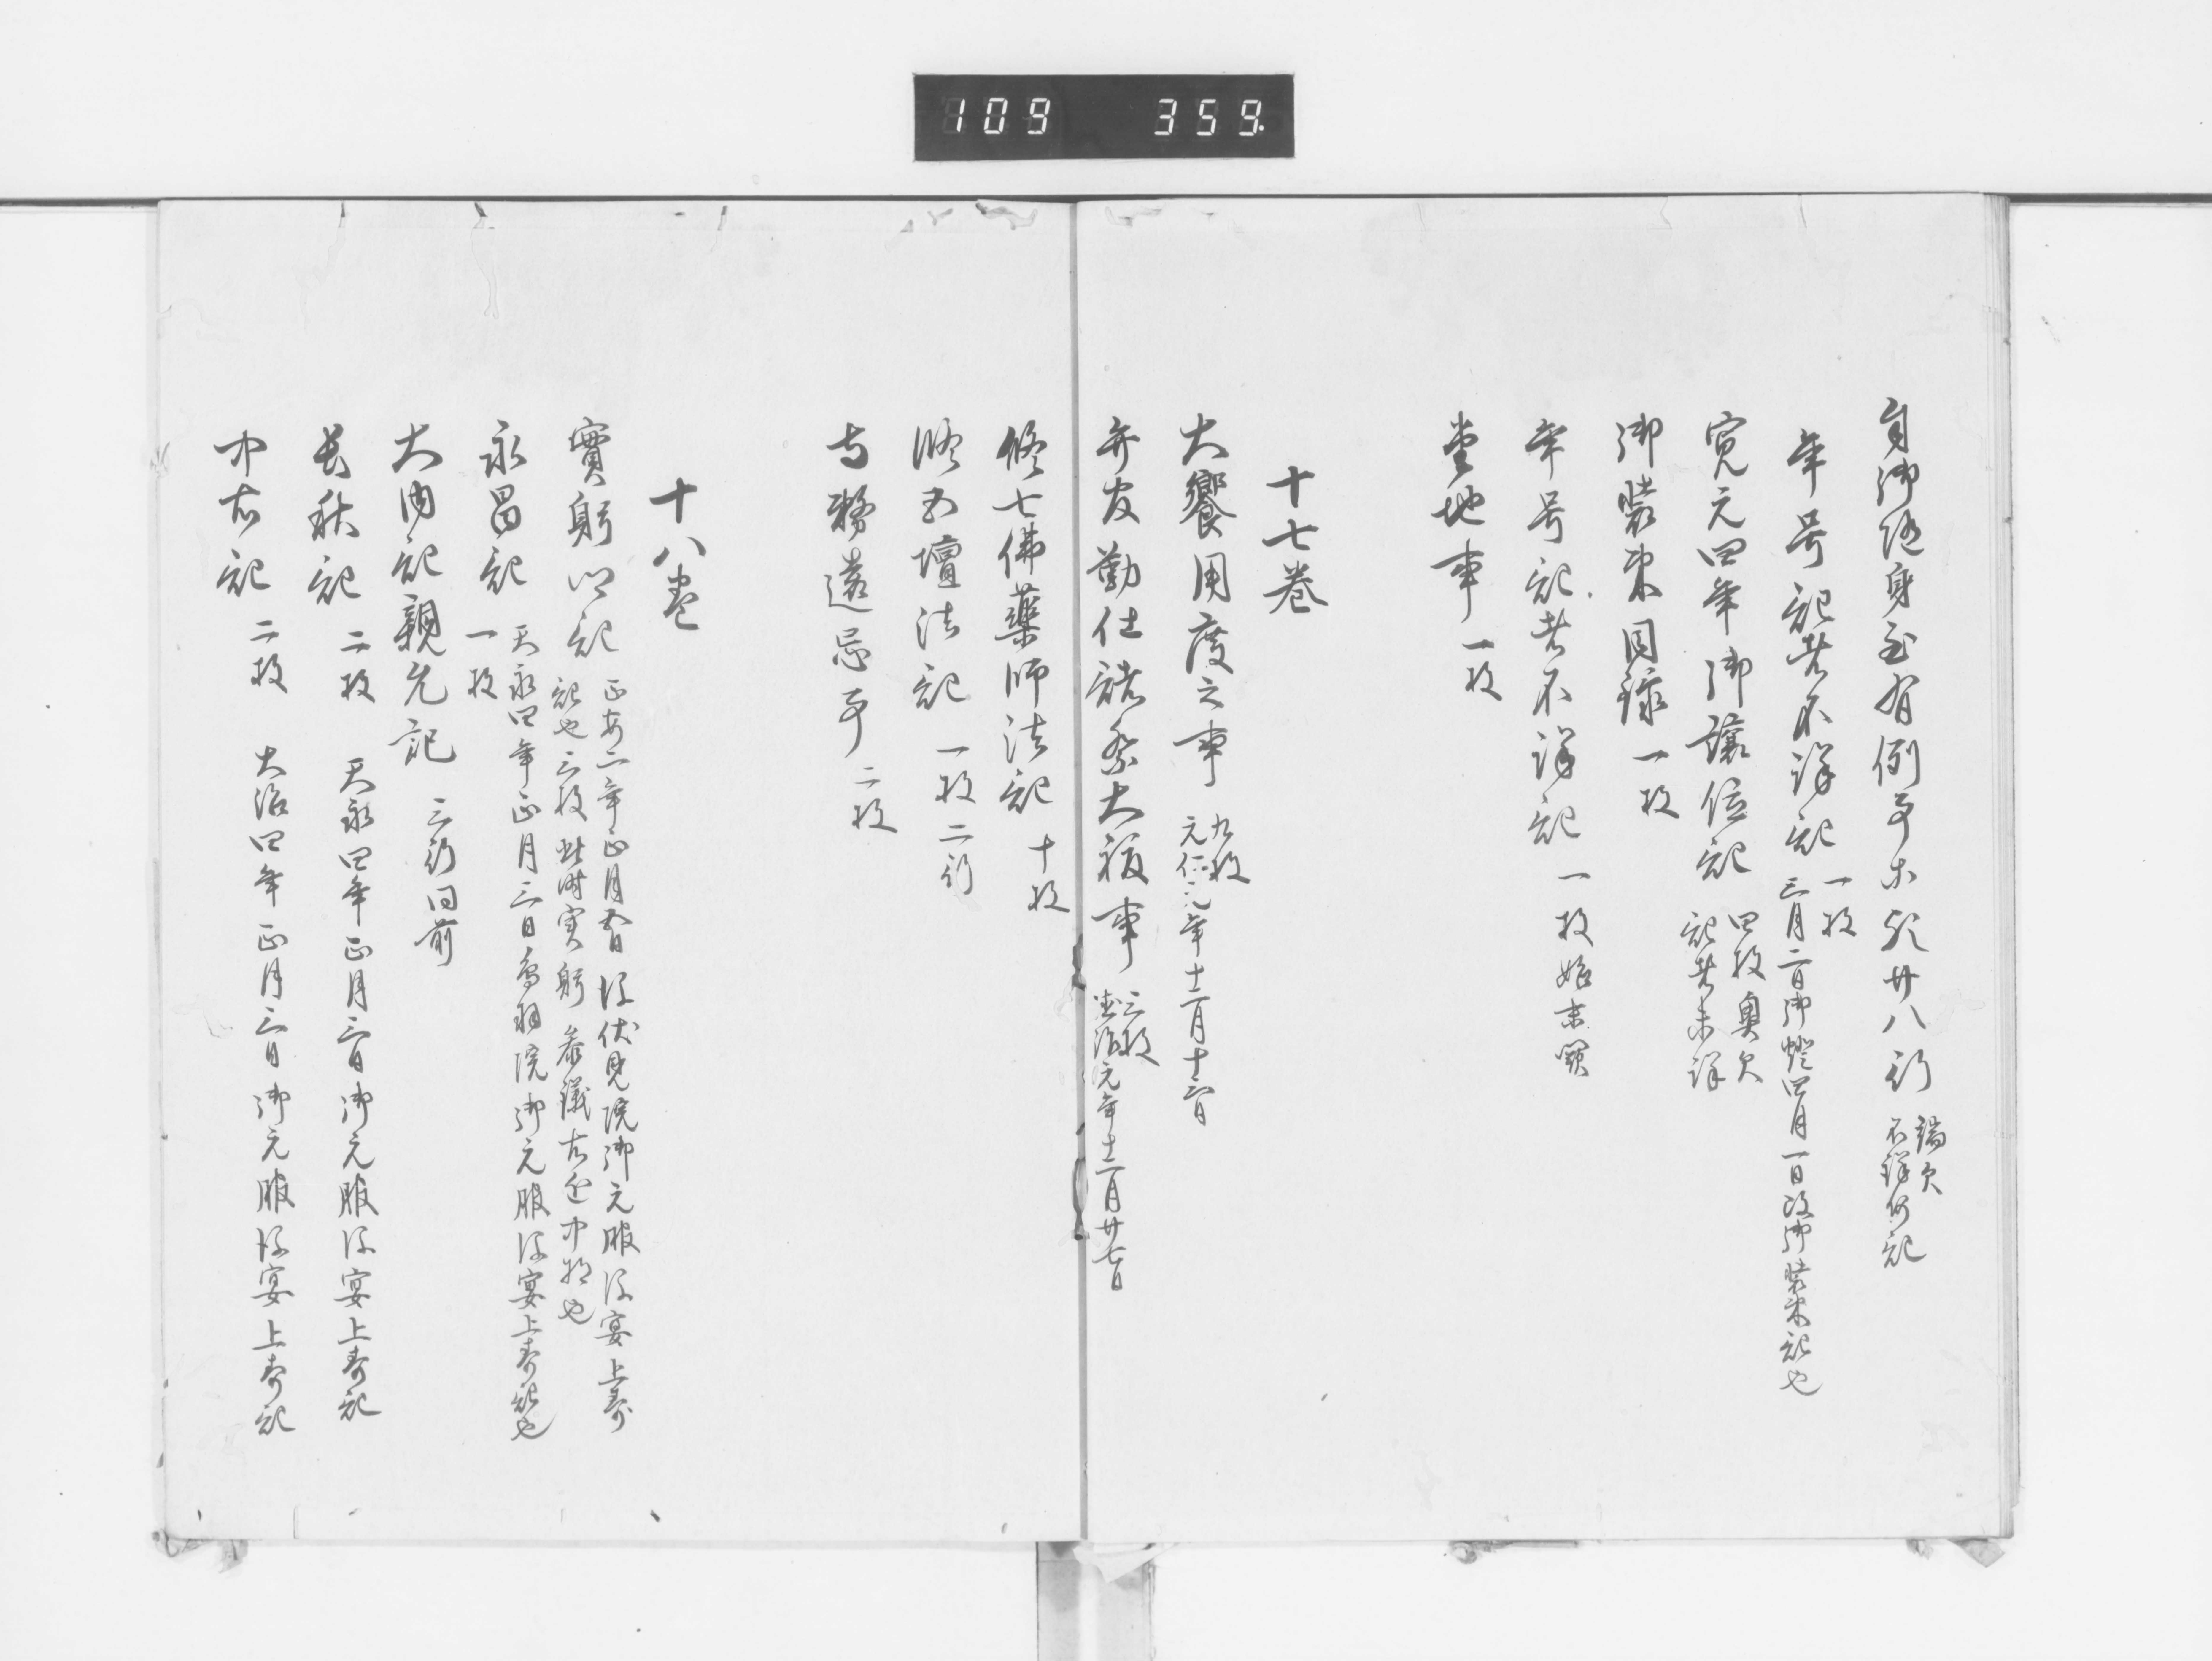 109 359.
自御随身至有例事等 廿八行 端欠
不詳何記
年号記者不詳記 一枚
三月二日御燈四月一日改御装束記也
寛元四年御譲位記 四枚奥欠
記者未詳
御装束目録 一枚
年号記者不詳記 一枚始末闕
堂地事 一枚
十七巻
大饗用度之事 九枚
元仁元年十二月十二日
弁官勤仕諸祭大祓事 三枚
寛治元年十二月廿七日
修七佛藥師法記 十枚
修五壇法記 一枚二行
寺務遠忌事 二枚
十八巻
實躬卿記 正安二年正月五日 後伏見院御元服後宴上寿
記也三枚 此時実躬 参議右近中将也
永昌記 天永四年正月三日鳥羽院御元服後宴上寿記也
一枚
大内記親光記 三行同前
長秋記 二枚 天永四年正月三日御元服後宴上寿記
中右記 二枚 大治四年正月三日御元服後宴上寿記